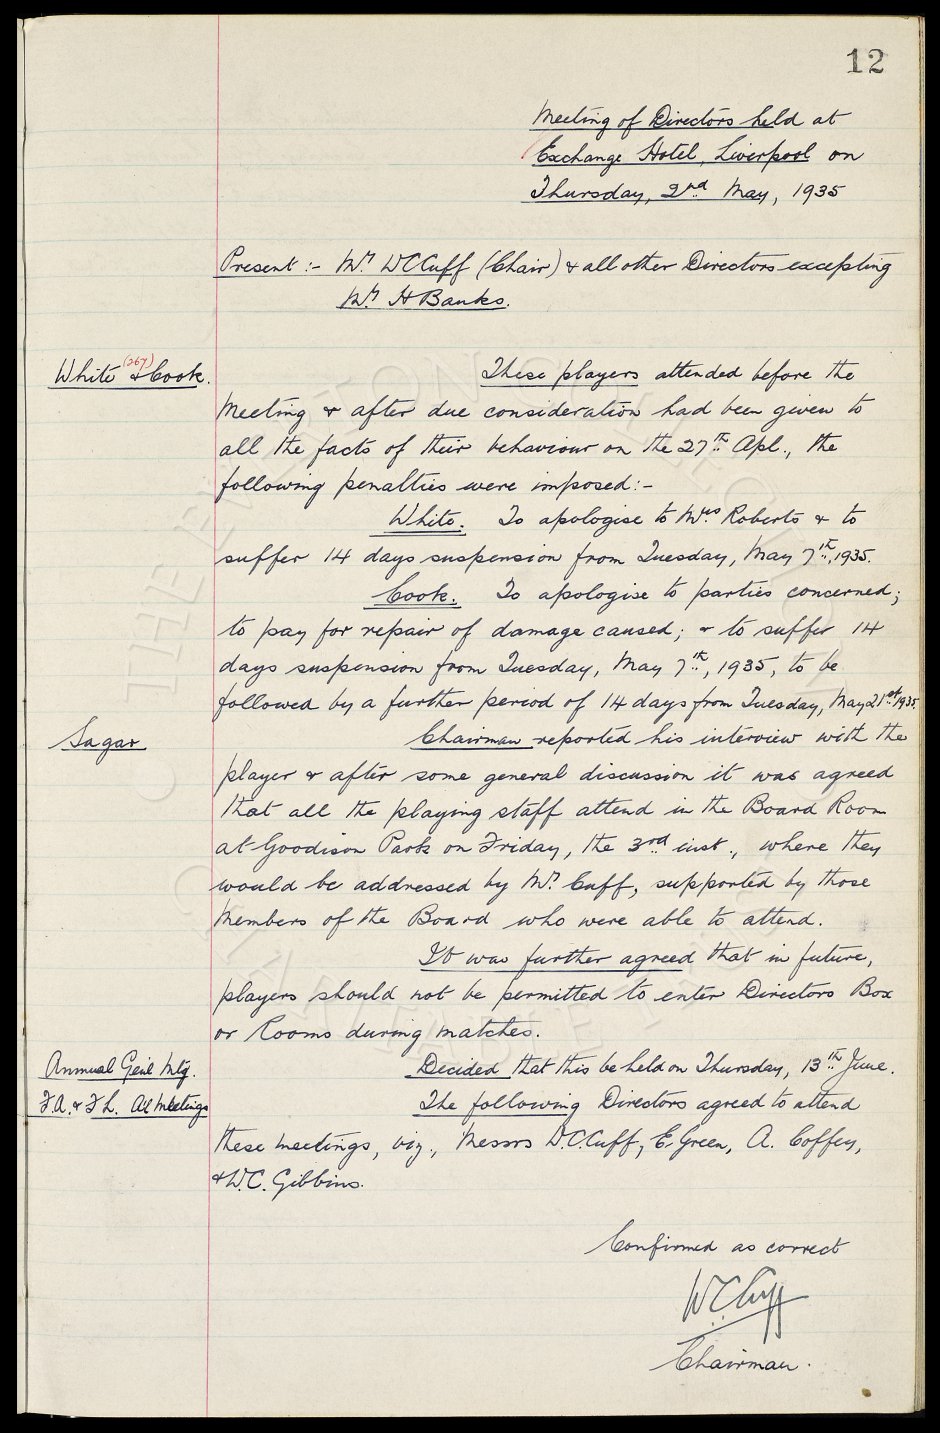 12
Meeting of Directors held at
Exchange Hotel, Liverpool on
Thursday, 2nd May, 1935
Present :- Mr. W C Cuff (Chair) & all other Directors excepting
Mr. H Banks.
White & Cook. (267)
These players attended before the
Meeting & after due consideration had been given to
all the facts of their behaviour on the 27th Apl., the
following penalties were imposed:-
White. To apologise to Mrs Roberts & to
suffer 14 days suspension from Tuesday, May 7th, 1935.
Cook. To apologise to parties concerned;
to pay for repair of damage caused; & to suffer 14
days suspension from Tuesday, May 7th, 1935, to be
followed by a further period of 14 days from Tuesday, May 21st 1935.
Sagar
Chairman reported his interview with the
player & after some general discussion it was agreed
that all the playing staff attend in the Board Room
at Goodison Park on Friday, the 3rd inst., where they
would be addressed by Mr. Cuff, supported by those
Members of the Board who were able to attend.
It was further agreed that in future,
players should not be permitted to enter Directors Box
or Rooms during matches.
Annual Genl Mtg.
Decided that this be held on Thursday, 13th June.
F.A. & F.L. Al Meetings
The following Directors agreed to attend
these meetings, viz., Messrs W.C. Cuff, E. Green, A. Coffey,
& W.C. Gibbins.
Confirmed as correct
W C Cuff
Chairman.